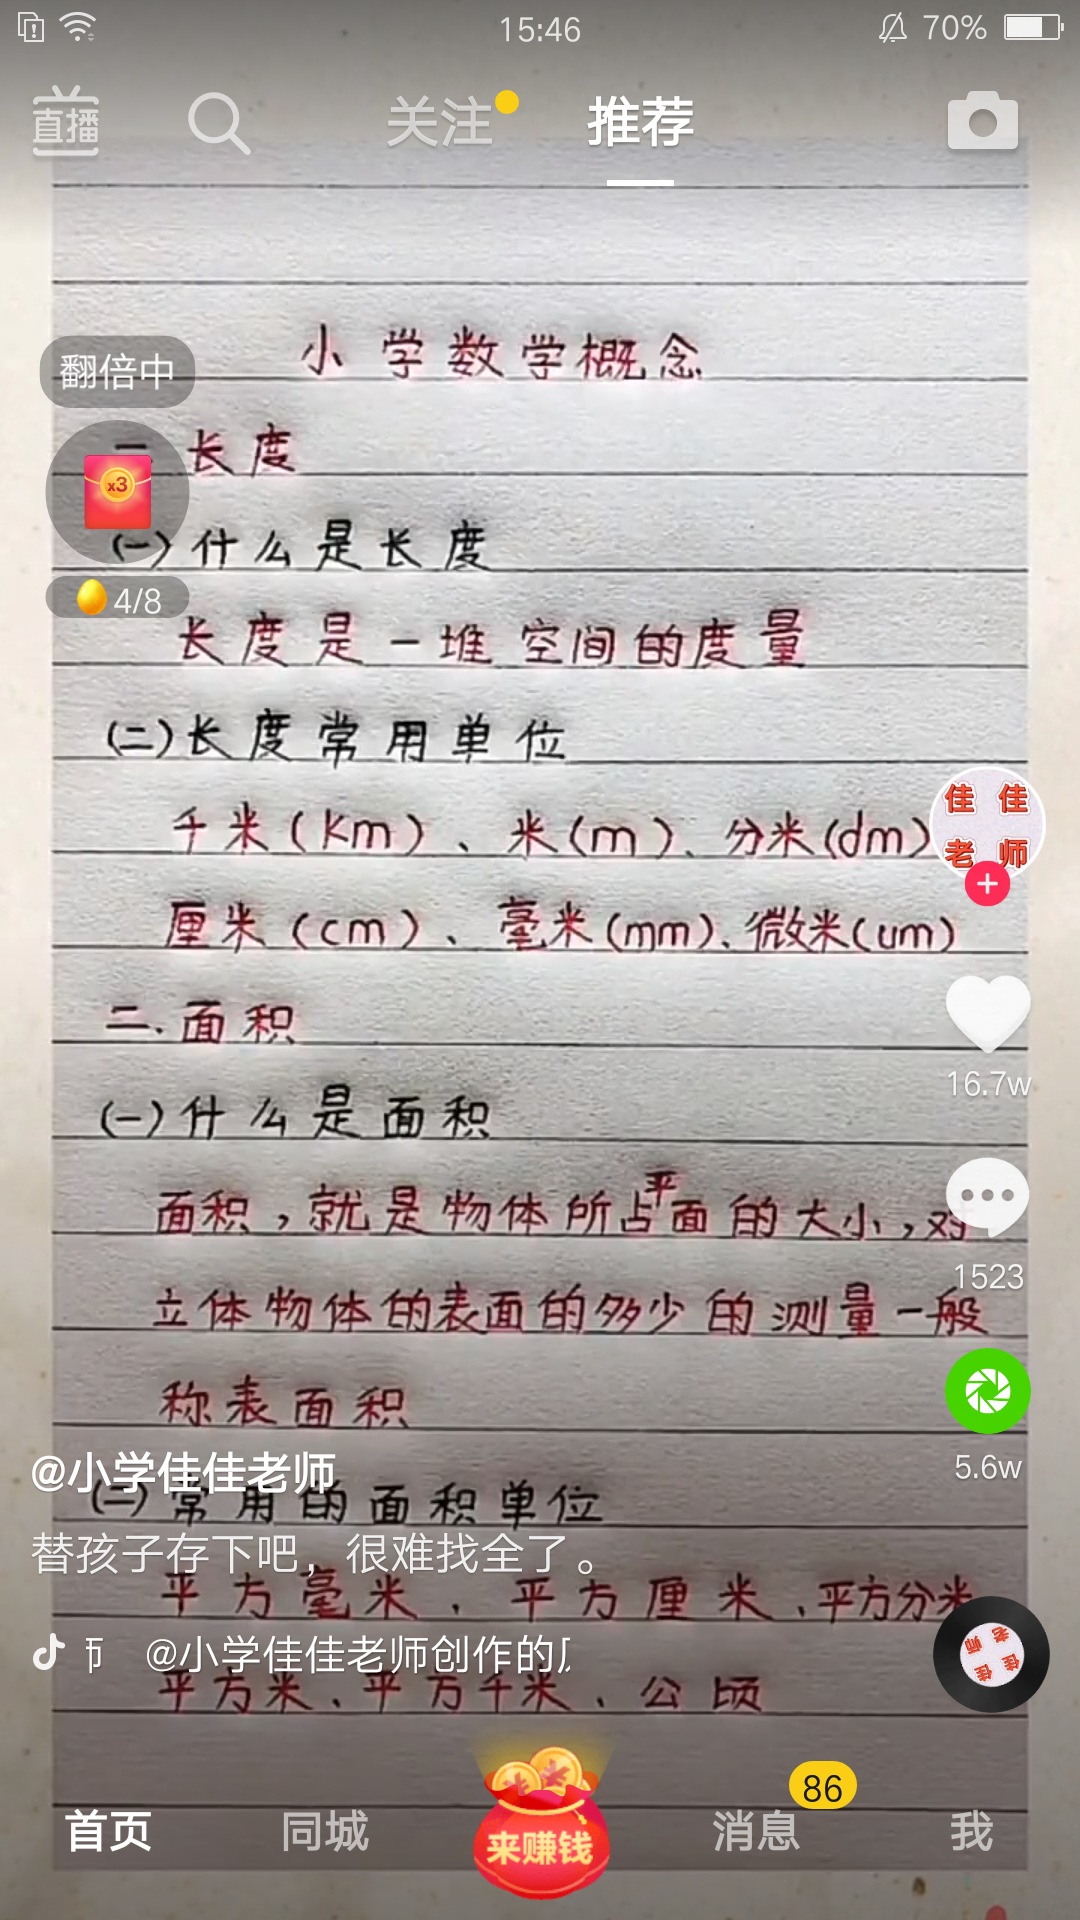 15:46
70%
直播
关注
推荐
小学数学概念
翻倍中
一.长度
x3
(一)什么是长度
4/8
长度是一堆空间的度量
(二)长度常用单位
千米(Km)、米(m)、分米(dm)
佳佳老师
厘米(cm)、毫米(mm)、微米(um)
二.面积
16.7w
(一)什么是面积
面积,就是物体所占平面的大小,对
1523
立体物体的表面的多少的测量一般
称表面积
5.6w
@小学佳佳老师
(二)常用的面积单位
替孩子存下吧，很难找全了。
平方毫米、平方厘米、平方分米
@小学佳佳老师创作的
佳佳老师
平方米、平方千米、公顷
首页
同城
来赚钱
消息
86
我